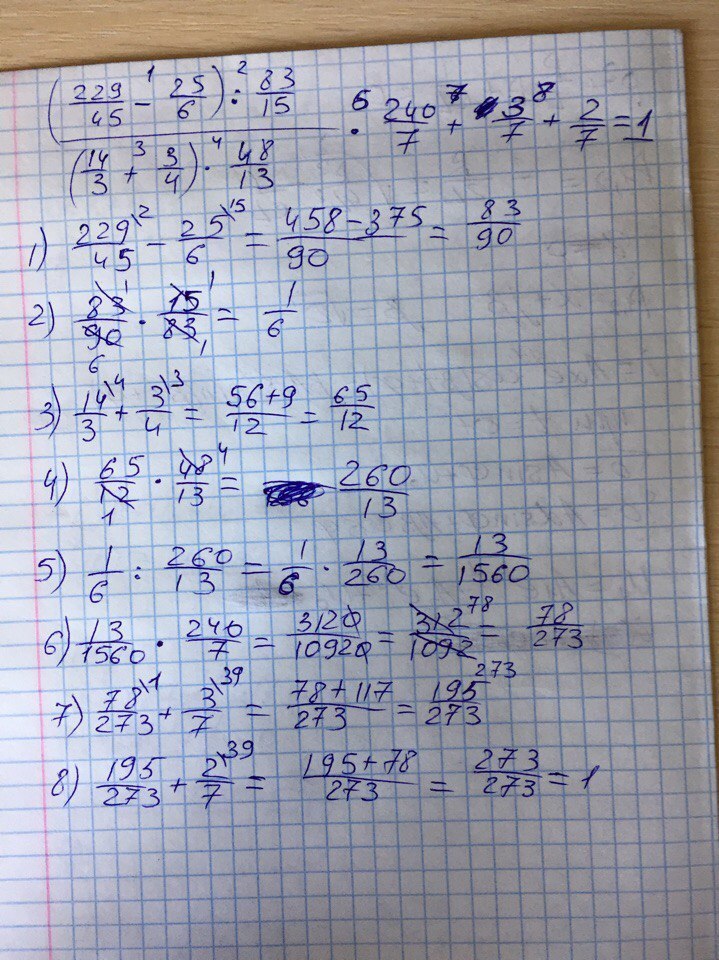 (229/45 -¹ 25/6) :² 83/15
(14/3 +³ 3/4) ·⁴ 48/13
·⁶ 240/7 +⁷ 3/7 +⁸ 2/7 = 1
1) 229\²/45 - 25\¹⁵/6 = 458-375/90 = 83/90
2) 83¹/90₆ · 15¹/83₁ = 1/6
3) 14\⁴/3 + 3\³/4 = 56+9/12 = 65/12
4) 65/12₁ · 48⁴/13 = 260/13
5) 1/6 : 260/13 = 1/6 · 13/260 = 13/1560
6) 13/1560 · 240/7 = 3120/10920 = 312⁷⁸/1092₂₇₃ = 78/273
7) 78\¹/273 + 3\³⁹/7 = 78+117/273 = 195/273
8) 195/273 + 2\³⁹/7 = 195+78/273 = 273/273 = 1